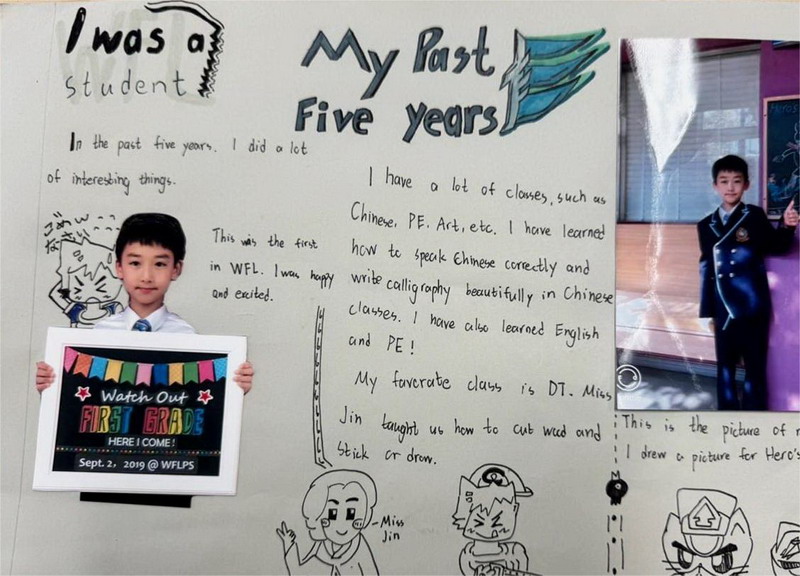 I was a
student
My Past
Five years
In the past five years. I did a lot
of interesting things.
This was the first
in WFL. I was happy
and excited.
Watch Out
FIRST GRADE
HERE I COME!
Sept. 2, 2019 @ WFLPS
I have a lot of classes, such as
Chinese, PE. Art, etc. I have learned
how to speak Chinese correctly and
write calligraphy beautifully in Chinese
classes. I have also learned English
and PE!
My favorate class is DT. Miss
Jin taught us how to cut wood and
stick or draw.
Miss
Jin
This is the picture of
I drew a picture for Hero's